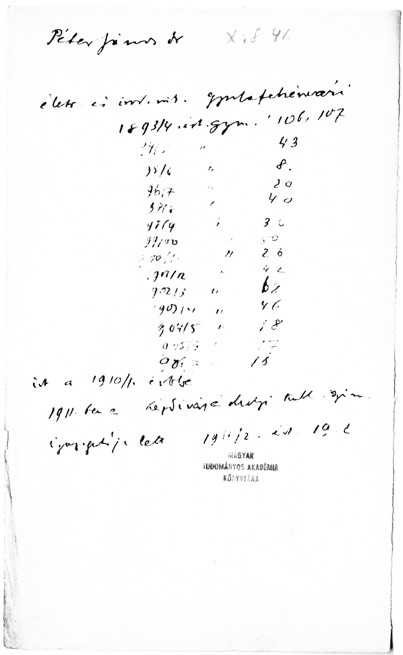 Péter János dr
élete és irod. műk. gyulafehérvári
1893/4. ért. gym. 106, 107
94/5 " 43
95/6 " 8.
96/7 " 20
97/8 " 40
98/9 "
99/00
" 26
901/2 "
902/3 " 62
903/4 " 46
904/5 " 18
905/6 " 17
906
ért. a 1910/1. évbe
1911-ben a kézdivásárhelyi kath. gym.
igazgatója lett 1911/2. ért.
MAGYAR
TUDOMÁNYOS AKADÉMIA
KÖNYVTÁRA